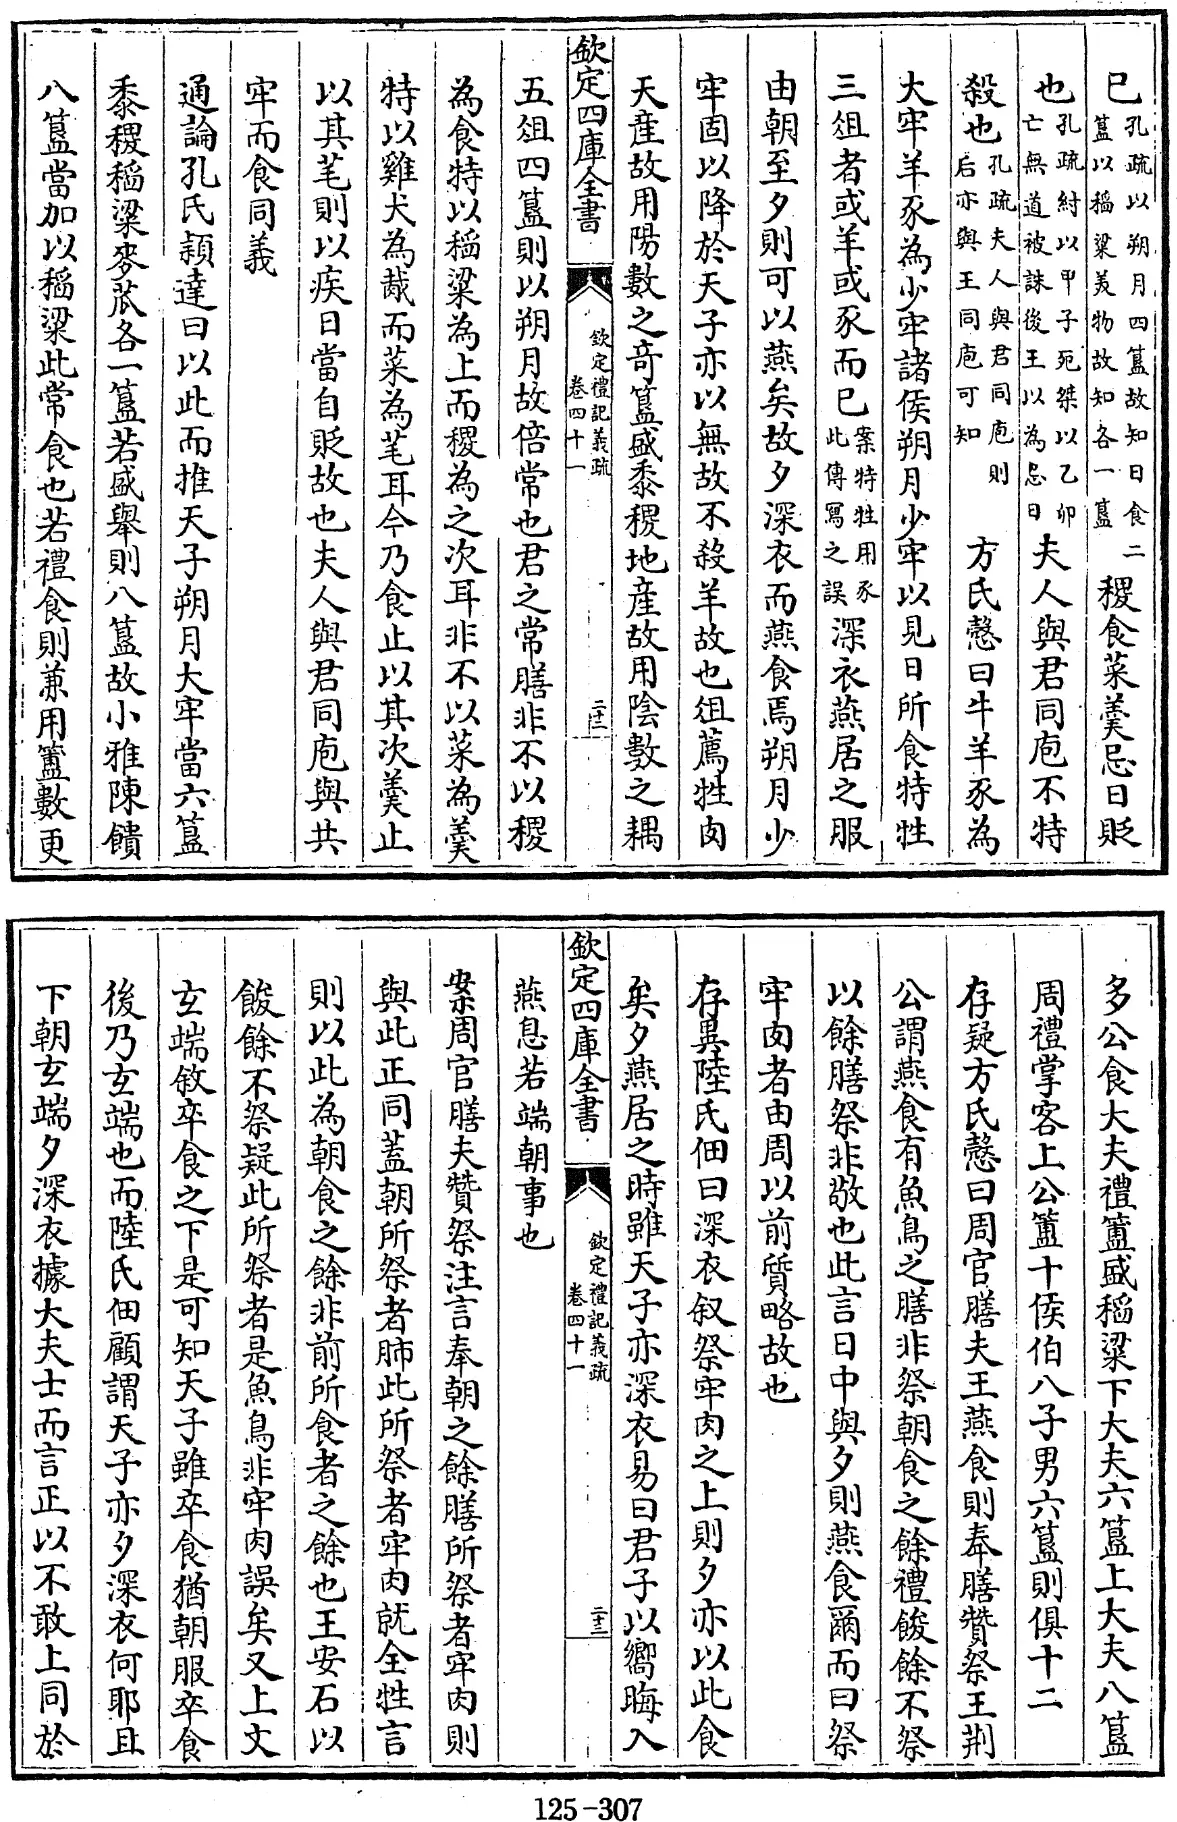 已孔疏以朔月四簋故知日食二簋以稻粱美物故知各一簋稷食菜羮忌日貶
也孔疏紂以甲子死桀以乙卯亡無道被誅後王以為忌日夫人與君同庖不特
殺也孔疏夫人與君同庖則后亦與王同庖可知方氏慤曰牛羊豕為
大牢羊豕為少牢諸侯朔月少牢以見日所食特牲
三俎者或羊或豕而已案特牲用豕此傳寫之誤深衣燕居之服
由朝至夕則可以燕矣故夕深衣而燕食焉朔月少
牢固以降於天子亦以無故不殺羊故也俎薦牲肉
天産故用陽數之奇簋盛黍稷地産故用陰數之耦
欽定四庫全書
欽定禮記義疏
卷四十一
二十二
五俎四簋則以朔月故倍常也君之常膳非不以稷
為食特以稻粱為上而稷為之次耳非不以菜為羮
特以雞犬為胾而菜為芼耳今乃食止以其次羮止
以其芼則以疾日當自貶故也夫人與君同庖與共
牢而食同義
通論孔氏穎達曰以此而推天子朔月大牢當六簋
黍稷稻粱麥苽各一簋若盛舉則八簋故小雅陳饋
八簋當加以稻粱此常食也若禮食則兼用簠數更
多公食大夫禮簠盛稻粱下大夫六簋上大夫八簋
周禮掌客上公簠十侯伯八子男六簋則俱十二
存疑方氏慤曰周官膳夫王燕食則奉膳贊祭王荆
公謂燕食有魚鳥之膳非祭朝食之餘禮餕餘不祭
以餘膳祭非敬也此言日中與夕則燕食爾而曰祭
牢肉者由周以前質略故也
存異陸氏佃曰深衣叙祭牢肉之上則夕亦以此食
矣夕燕居之時雖天子亦深衣易曰君子以嚮晦入
欽定四庫全書
欽定禮記義疏
卷四十一
二十三
燕息若端朝事也
案周官膳夫贊祭注言奉朝之餘膳所祭者牢肉則
與此正同蓋朝所祭者肺此所祭者牢肉就全牲言
則以此為朝食之餘非前所食者之餘也王安石以
餕餘不祭疑此所祭者是魚鳥非牢肉誤矣又上文
玄端敘卒食之下是可知天子雖卒食猶朝服卒食
後乃玄端也而陸氏佃顧謂天子亦夕深衣何耶且
下朝玄端夕深衣據大夫士而言正以不敢上同於
125-307